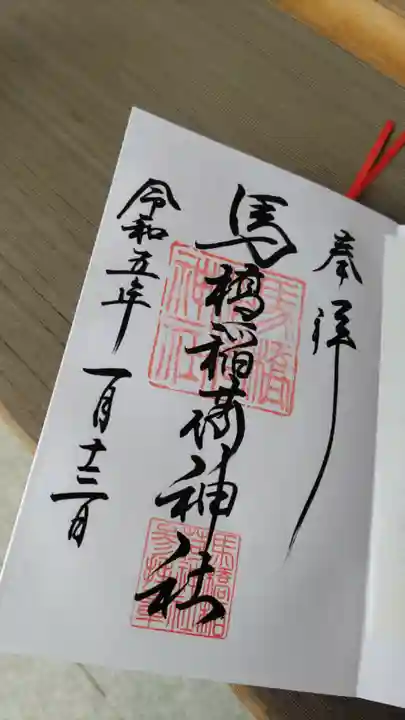 奉拝
馬橋稲荷神社
令和五年 一月十三日